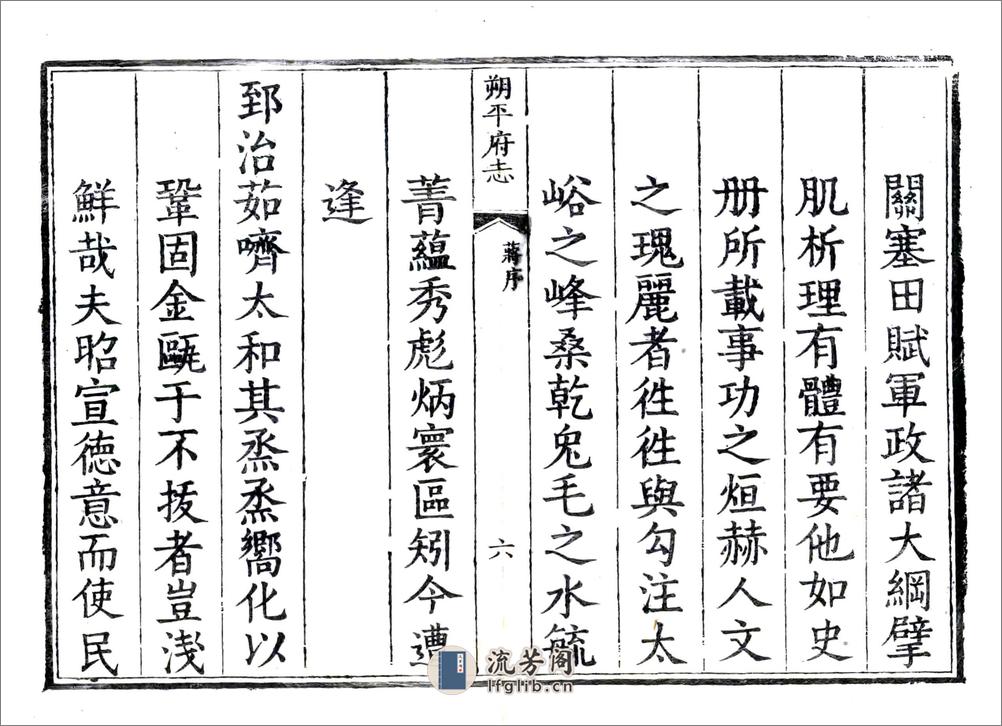 關塞田賦軍政諸大綱擘
肌析理有體有要他如史
册所載事功之烜赫人文
之瑰麗者徃徃與勾注太
峪之峰桑乾兔毛之水毓
朔平府志
蔣序
六
菁蘊秀彪炳寰區矧今遭
逢
郅治茹嚌太和其烝烝嚮化以
鞏固金甌于不拔者豈淺
鮮哉夫昭宣德意而使民
流芳阁
lfglib.cn